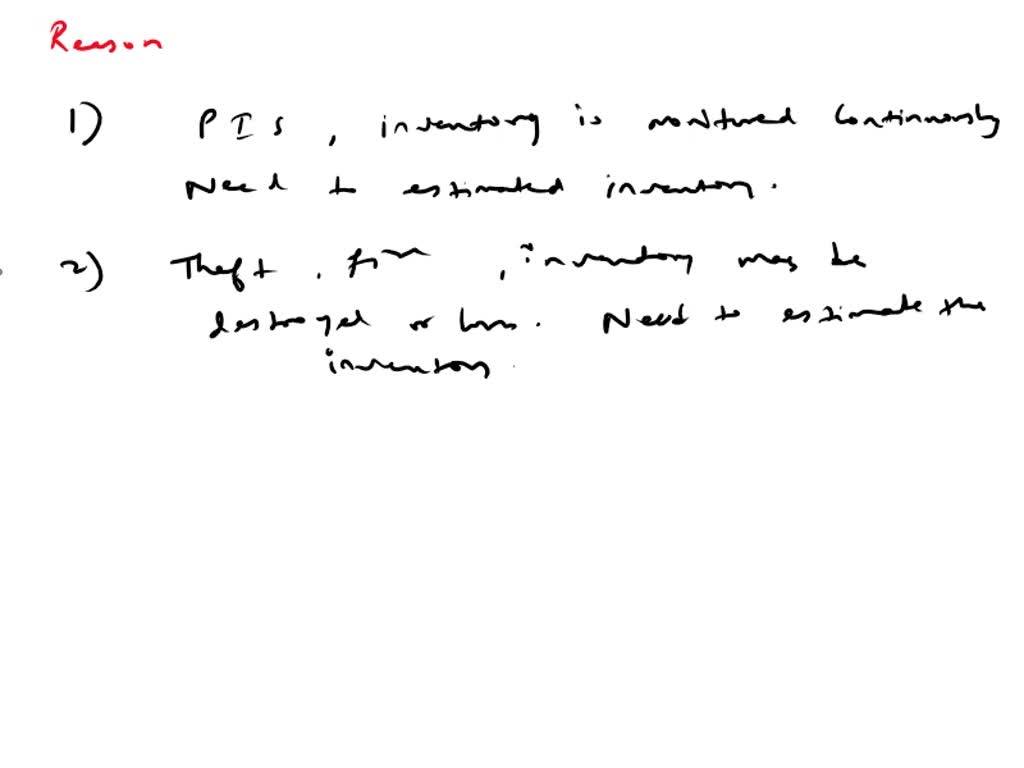 Reason
1) PIS, inventory is monitured continuously
Need to estimated inventory.
2) Theft, fire, inventory may be
destroyed or loss. Need to estimate the
inventory